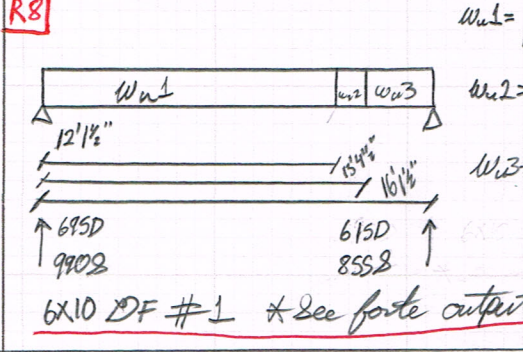 R8
Wu1=
Wu1
Wu2
Wu3
Wu2=
Wu3
12'1½"
13'4½"
16'1½"
695D
990S
615D
855S
6X10 DF #1 *See forte output